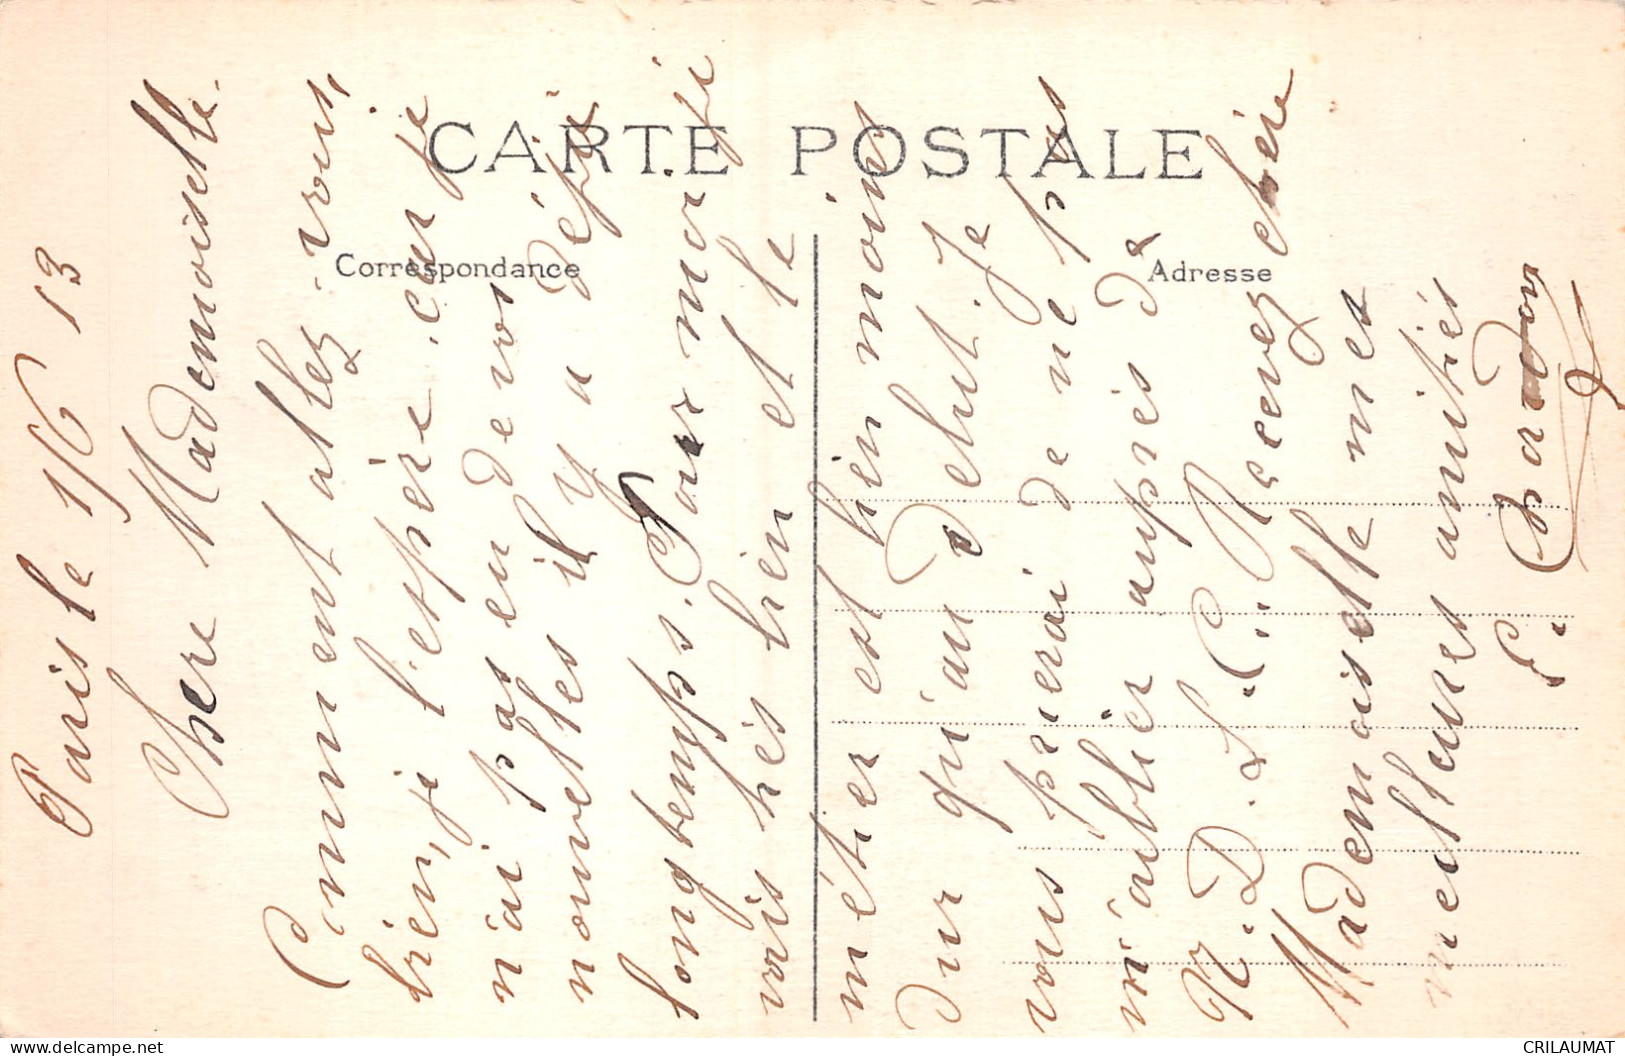 CARTE POSTALE
Correspondance
Adresse
Paris le 1/6 13
Chere Mademoiselle.
Comment allez-vous,
bien, je l'espère. car je
n'ai pas eu de vos
nouvelles il y a déjà
longtemps. Pour moi je
vais très bien et le
métier est bien moins
dur qu'au début. Je
vous prierai de ne pas
m'oublier auprès de
Recevez chère
Mademoiselle mes
meilleures amitiés
CRILAUMAT